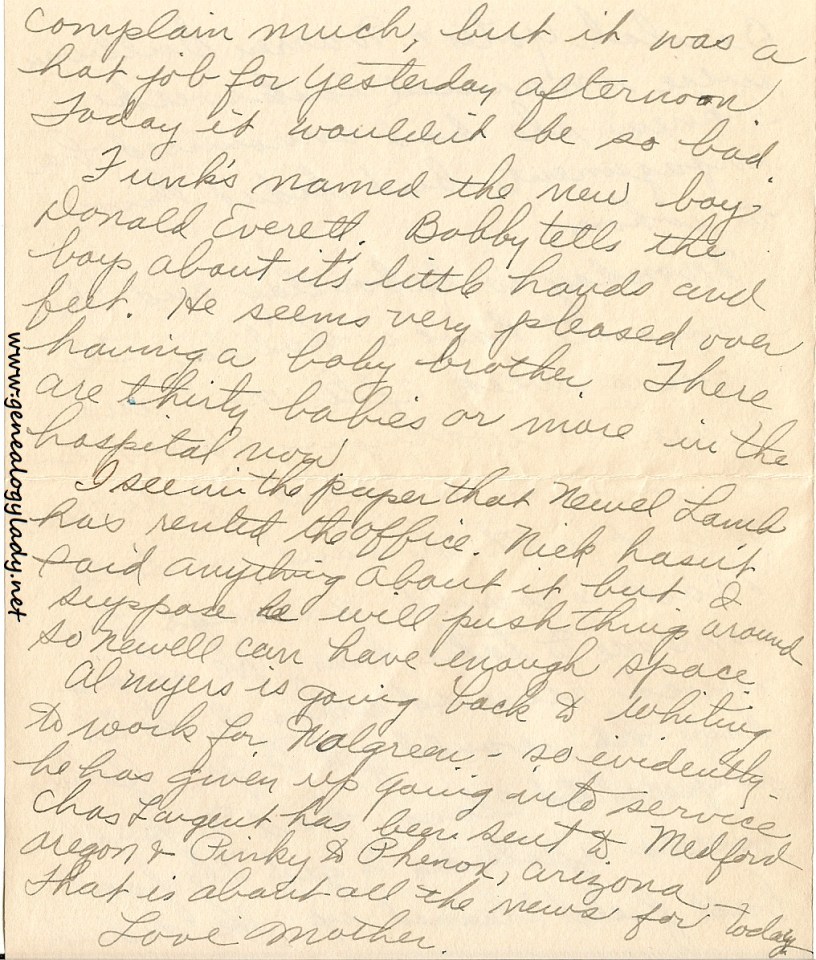 complain much, but it was a
hot job for yesterday afternoon
Today it wouldn't be so bad.
Funk's named the new boy
Donald Everett. Bobby tells the
boys about it's little hands and
feet. He seems very pleased over
having a baby brother. There
are thirty babies or more in the
hospital now
I see in the paper that Newel Lamb
has rented the office. Nick hasn't
said anything about it but I
suppose he will push things around
so Newell can have enough space.
Al Myers is going back to Whiting
to work for Walgreen - so evidently
he has given up going into service
Chas Largent has been sent to Medford
Oregon & Pinky to Phenox, Arizona
That is about all the news for today
Love Mother.
www.genealogylady.net